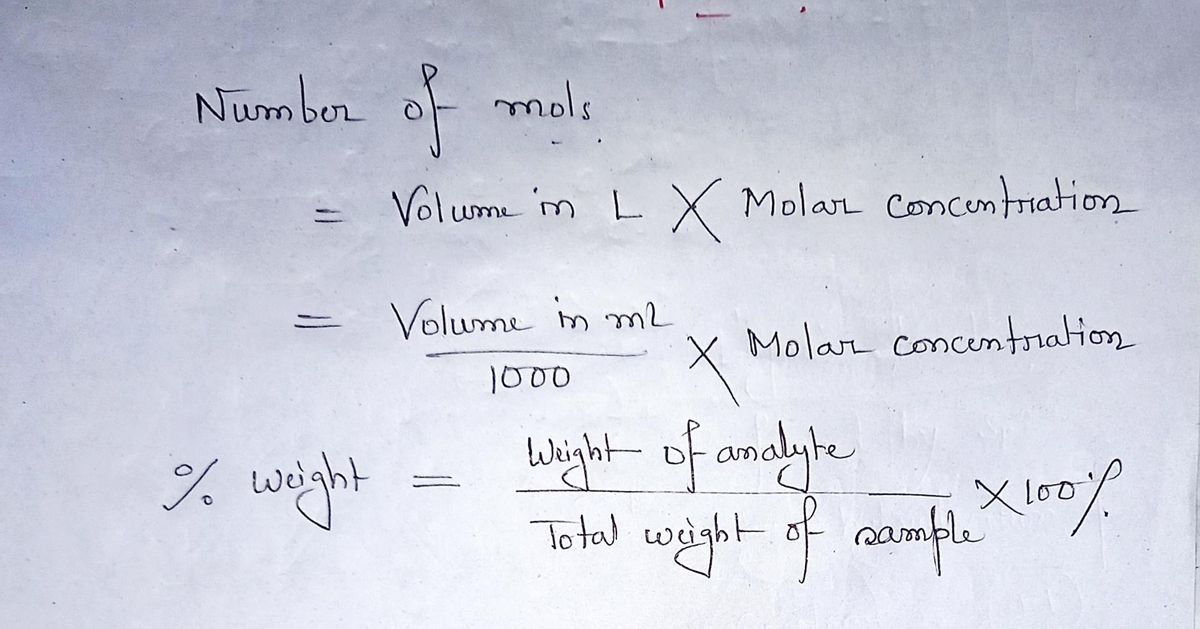 Number of mols
= Volume in L X Molar concentration
= Volume in mL / 1000 X Molar concentration
% weight = Weight of analyte / Total weight of sample X 100%